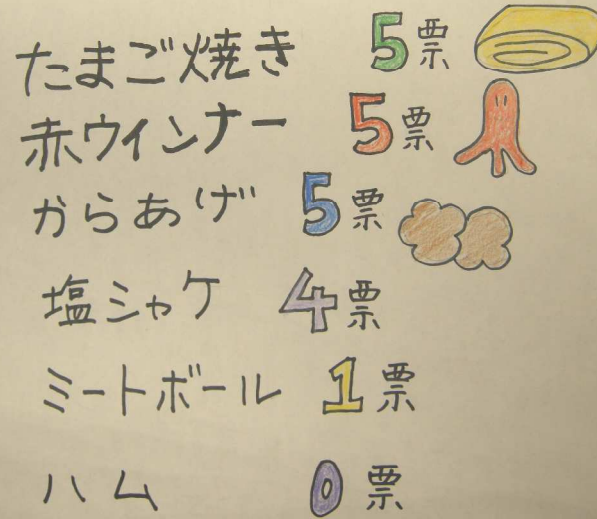 たまご焼き 5票
赤ウインナー 5票
からあげ 5票
塩シャケ 4票
ミートボール 1票
ハム 0票